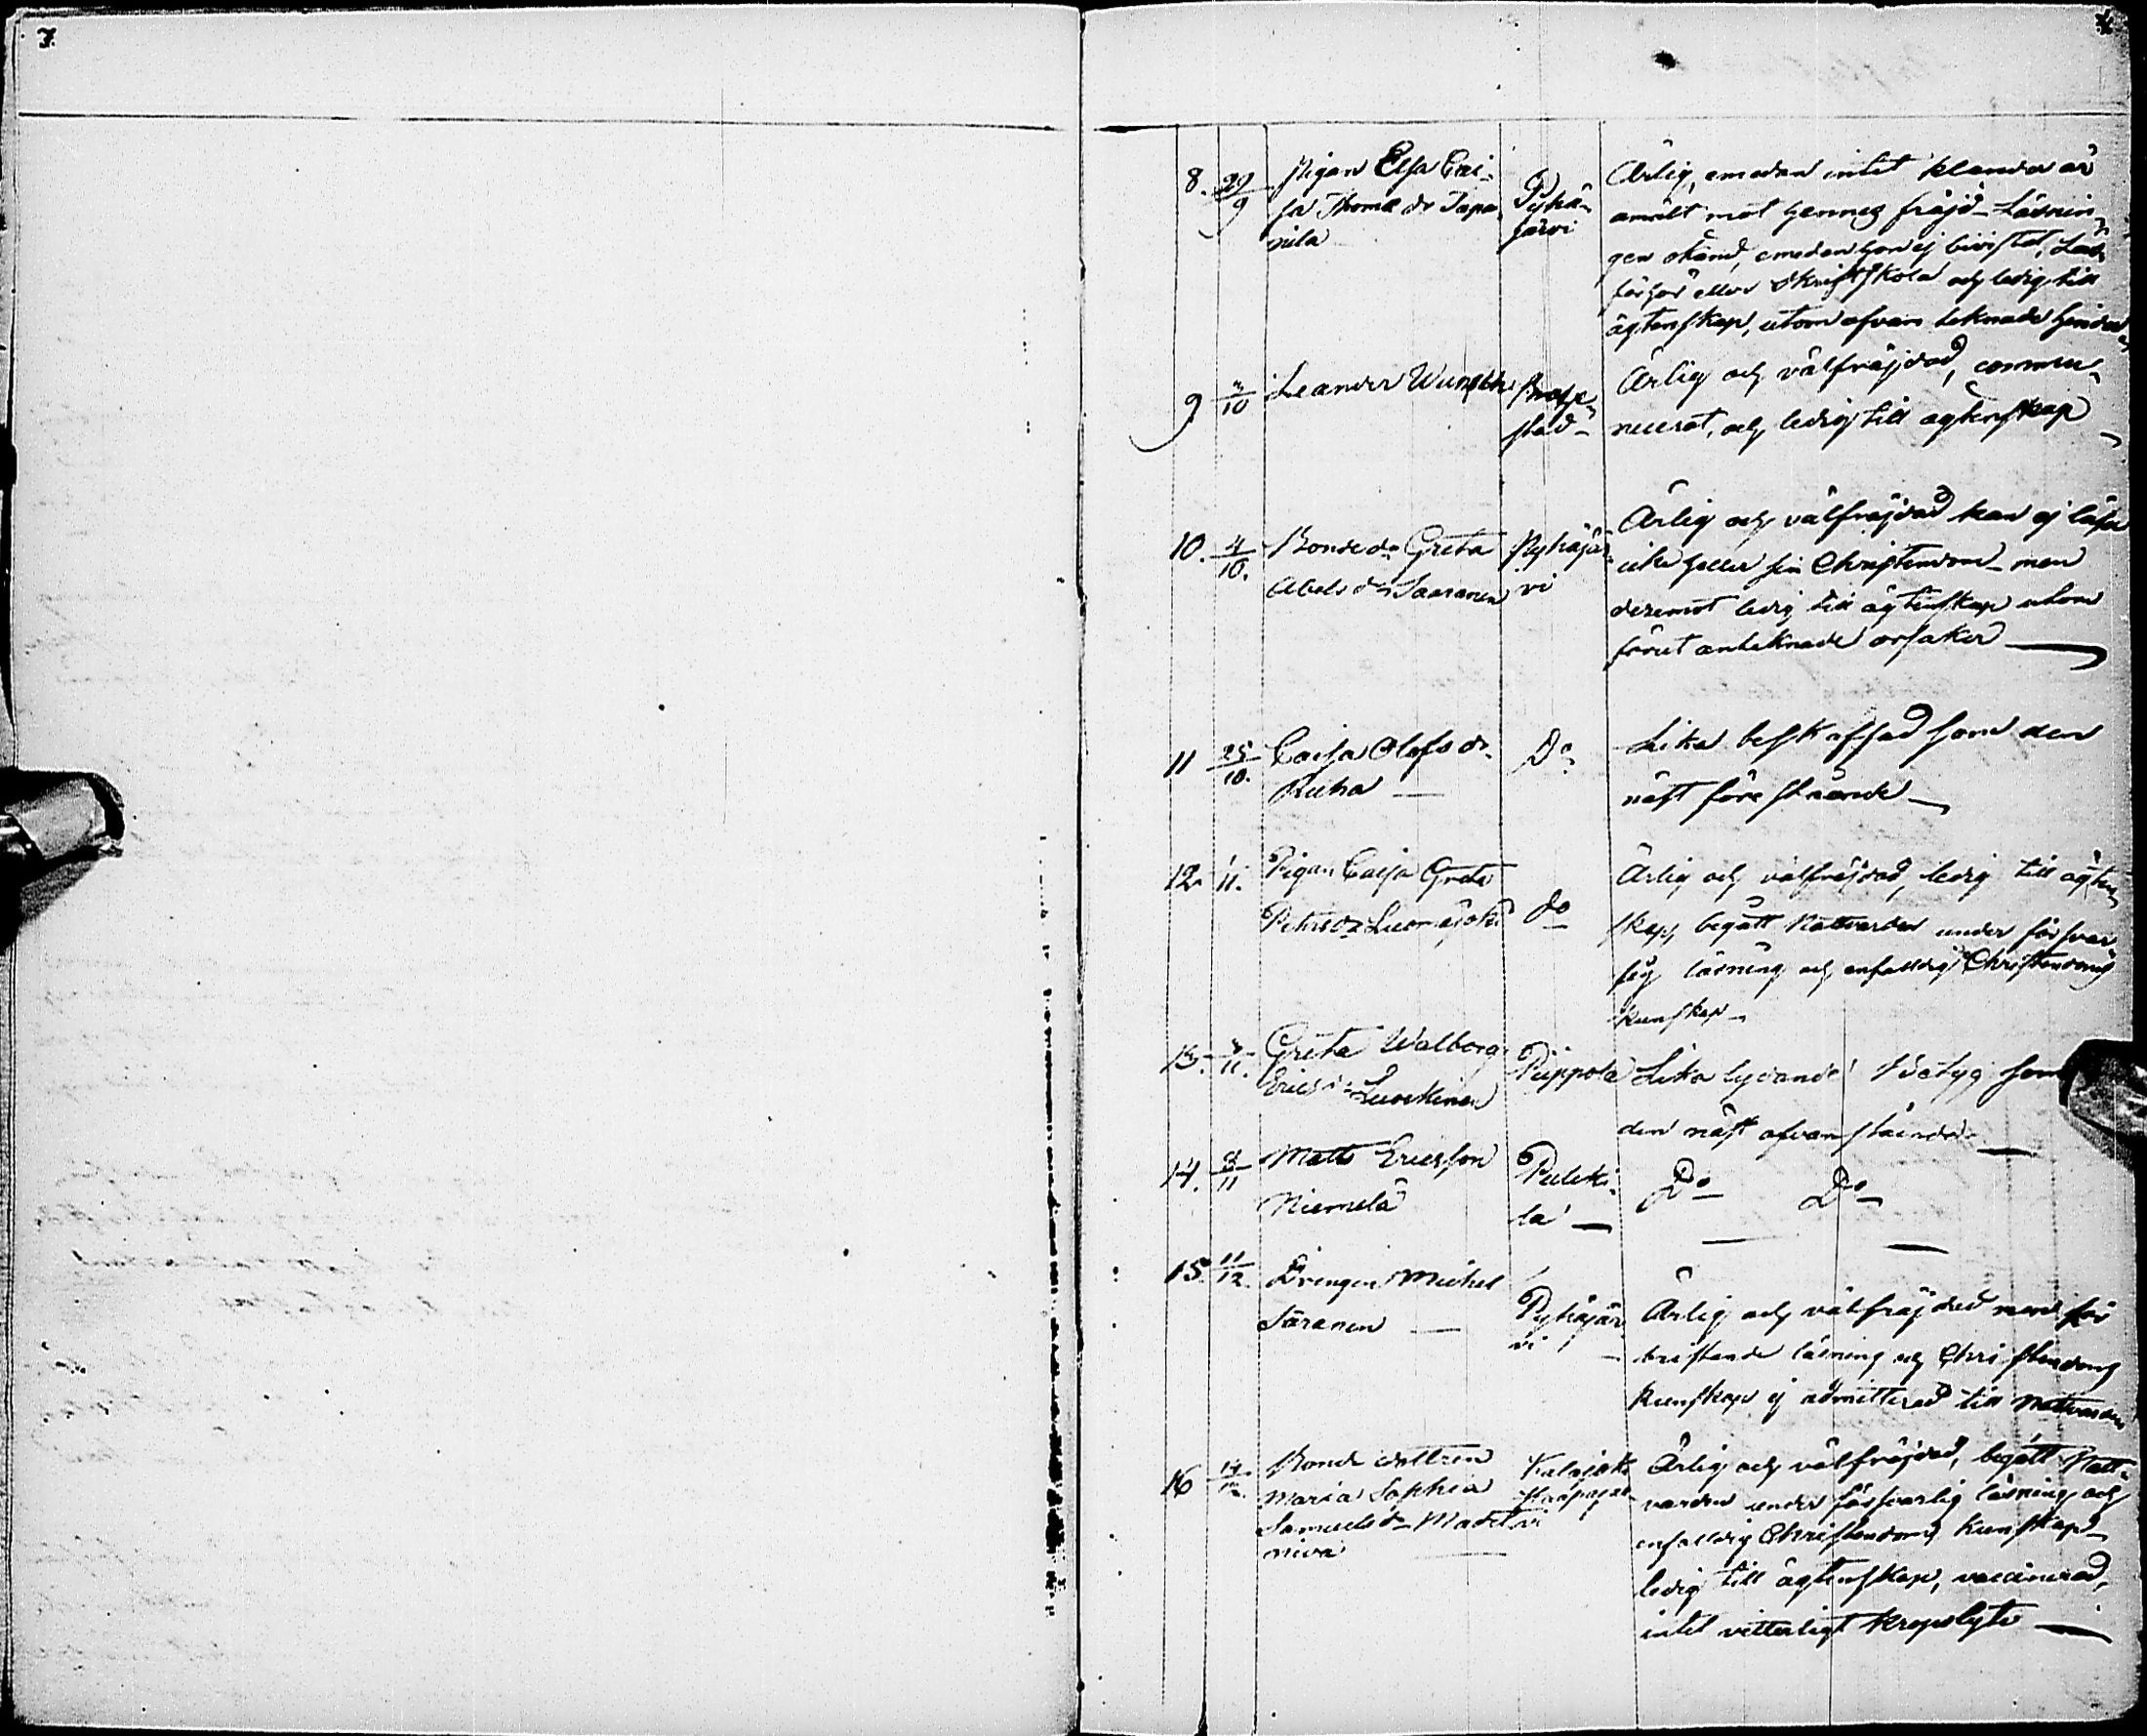 7.
8. 29/9 Pigan Elsa Cai-
sa Thomæ dr Tapa-
nila
Pyhä-
järvi
Ärlig, emedan intet klander är
anmält mot hennes fräjd - Läsnin-
gen okänd, emedan hon ej bivistat, Läs-
förhör eller Skriftskola och ledig till
ägtenskap, utom ofvan teknade hinder
9 3/10 Leander
stad -
Ärlig och välfräjdad, commu-
nicerat, och ledig till ägtenskap
10. 4/10. Bonde dr Greta
Abels dr Saaranen
Pyhäjär-
vi
Ärlig och välfräjdad kan ej läsa
icke heller sin Christendom - men
deremot ledig till ägtenskap utom
förut anteknade orsaker
11 25/10. Caisa Olofs dr
Ruha
Do
Lika beskaffad som den
näst föreståande
12. 1/11. Pigan Caisa Greta
Petters dr Luomajoki
do
Ärlig och välfräjdad, ledig till ägten-
skap, begått Nattvarden under försvar-
lig läsning och enfaldig Christendoms
kunskap -
13. /11. Greta Walborg
Erics dr Luockinen
Piippola
Lika lydande betyg som
den näst ofvanstående
14. /11 Matts Ericsson
Niemelä
Pulcki-
la
Do Do
15. 11/12. Drengen Michel
Saranen
Pyhäjär-
vi
Ärlig och välfräjdad men för
bristande läsning och Christendoms
kunskap ej admitterad till Nattvarden
16 14/12. Bonde dottren
Maria Sophia
Samuels dr Madet
niva
Kalajoki
Haapajär-
vi
Ärlig och välfräjdad, begått Natt-
varden under försvarlig läsning och
enfaldig Christendoms kunskap -
ledig till ägtenskap, vaccinerad,
intet vitterligt kropslyte